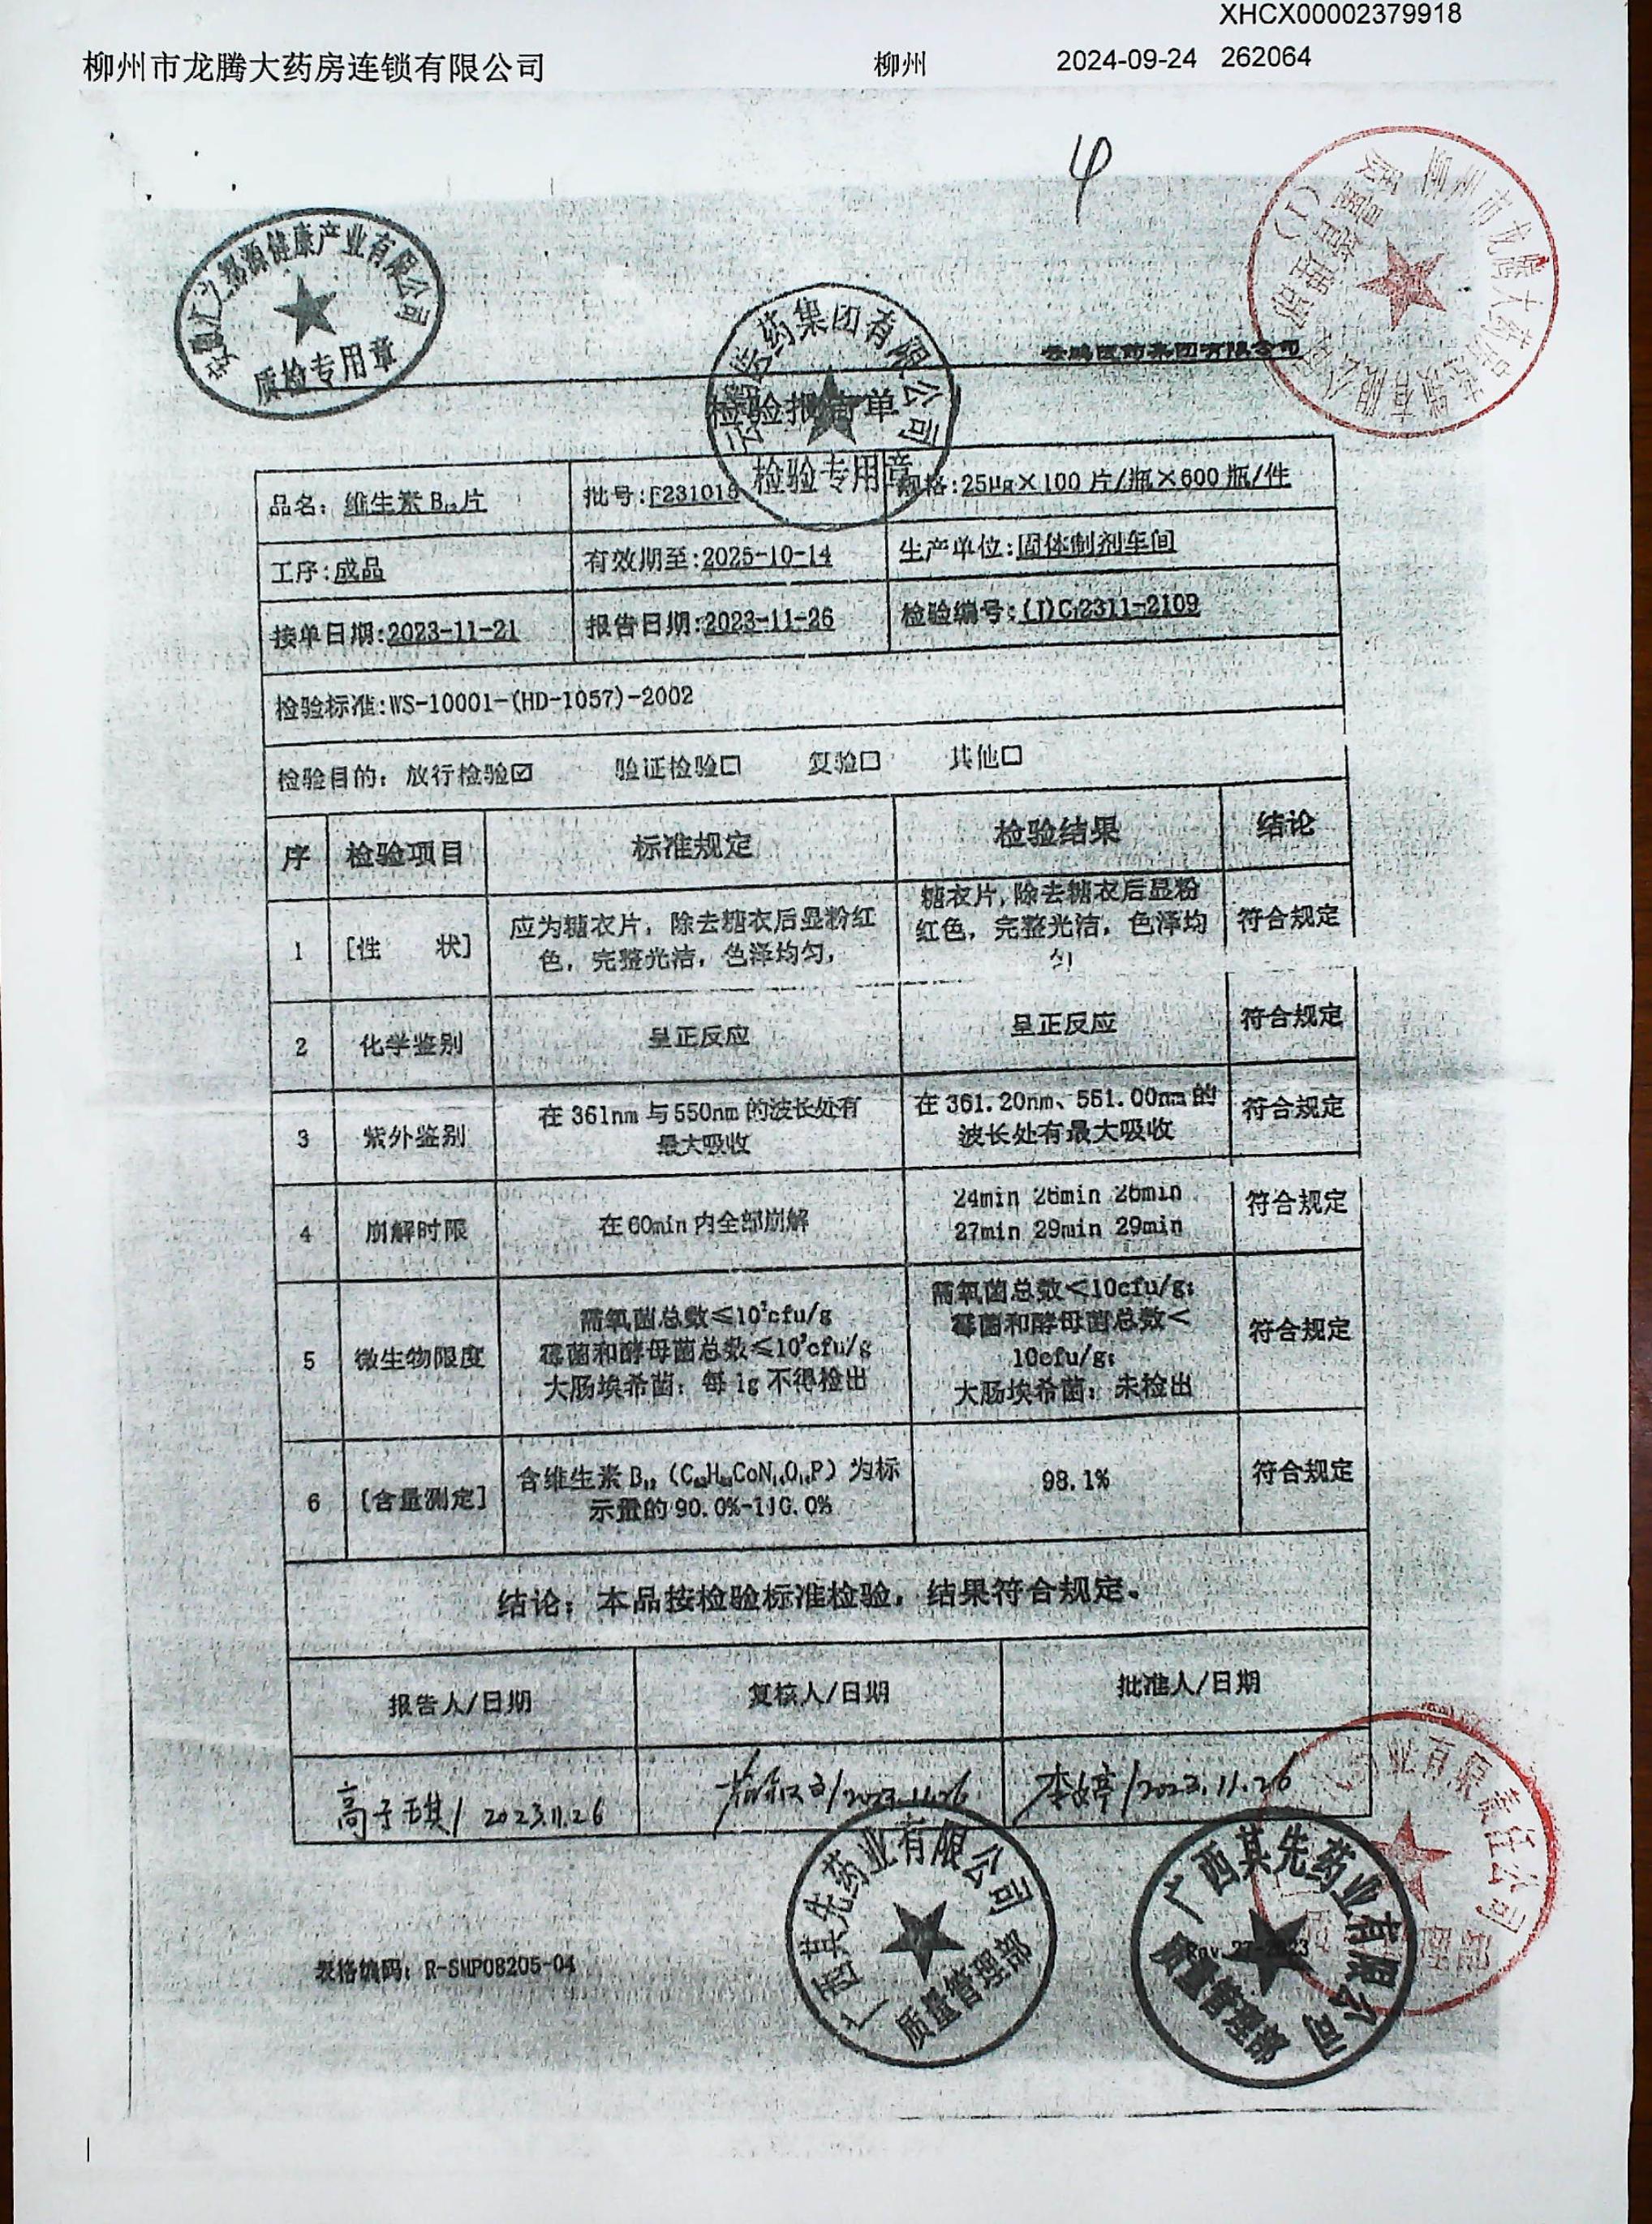 XHCX00002379918
柳州市龙腾大药房连锁有限公司 柳州 2024-09-24 262064
健康产业有限公司
质检专用章
医药集团有限公司
检验专用章
柳州市龙腾大药房连锁有限公司
质量管理部
(1)
云鹏医药集团有限公司
检验报告单
品名：维生素 B₁₂片 批号:F23101 规格:25μg×100 片/瓶×600 瓶/件
工序:成品 有效期至:2025-10-14 生产单位:固体制剂车间
接单日期:2023-11-21 报告日期:2023-11-26 检验编号:(J)C2311-2109
检验标准:WS-10001-(HD-1057)-2002
检验目的：放行检验☑ 验证检验□ 复验□ 其他□
序 检验项目 标准规定 检验结果 结论
1 [性 状] 应为糖衣片，除去糖衣后显粉红色，完整光洁，色泽均匀， 糖衣片,除去糖衣后显粉红色，完整光洁，色泽均匀 符合规定
2 化学鉴别 呈正反应 呈正反应 符合规定
3 紫外鉴别 在 361nm 与 550nm 的波长处有最大吸收 在 361.20nm、551.00nm 的波长处有最大吸收 符合规定
4 崩解时限 在 60min 内全部崩解 24min 26min 26min 27min 29min 29min 符合规定
5 微生物限度 需氧菌总数≤10³cfu/g 霉菌和酵母菌总数≤10²cfu/g 大肠埃希菌：每 1g 不得检出 需氧菌总数＜10cfu/g; 霉菌和酵母菌总数＜10cfu/g; 大肠埃希菌：未检出 符合规定
6 [含量测定] 含维生素 B₁₂（C₆₃H₈₈CoN₁₄O₁₄P）为标示量的 90.0%-110.0% 98.1% 符合规定
结论：本品按检验标准检验，结果符合规定。
报告人/日期 复核人/日期 批准人/日期
高子琪/ 2023.11.26 /2023.11.26 李婷/2023.11.26
广西其先药业有限公司
质量管理部
广西其先药业有限公司
质量管理部
业有限责任公司
表格编码：R-SMP08205-04